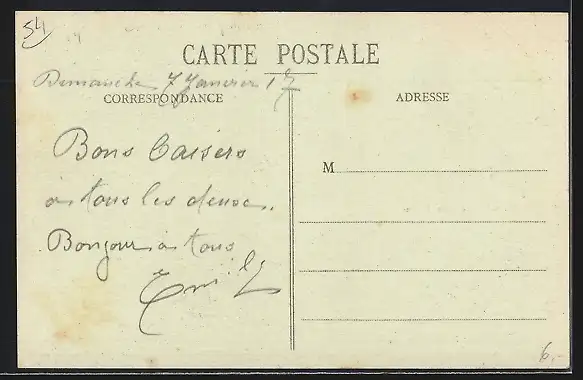 54
CARTE POSTALE
Dimanche 7 Janvier 17
CORRESPONDANCE
ADRESSE
Bons Baisers
M
à tous les deux.
Bonjour à tous
Emily
6.-